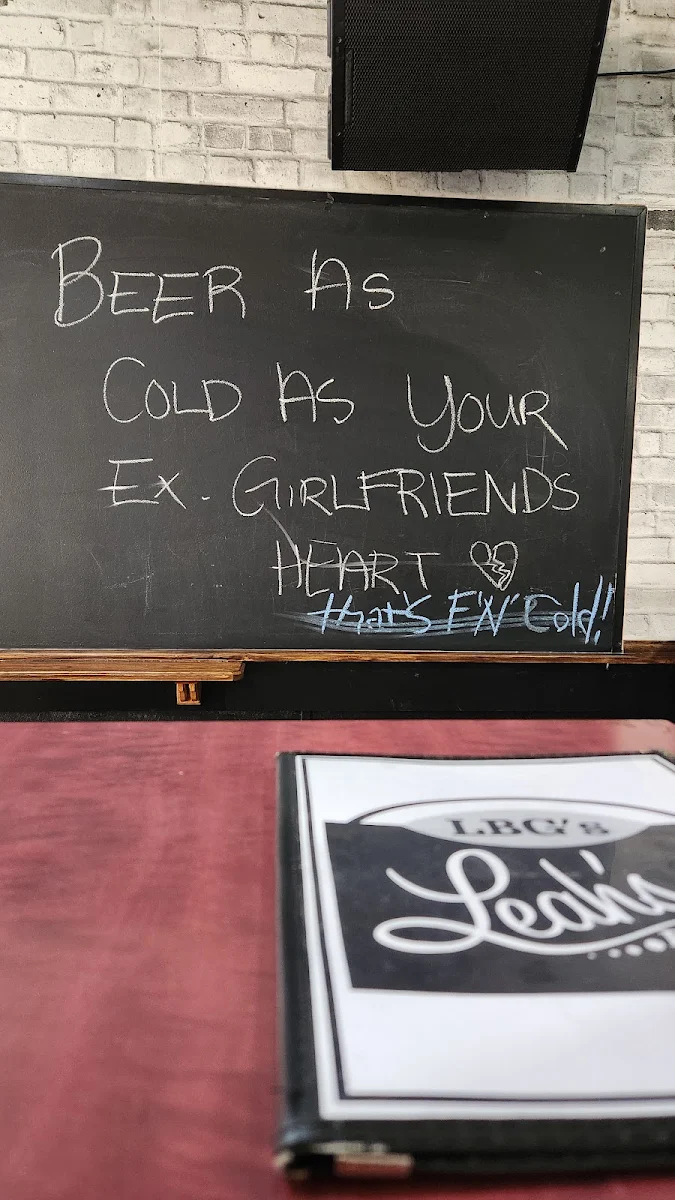 BEER AS
COLD AS YOUR
EX. GIRLFRIENDS
HEART
that's F'N' Cold!
LBG's
Leah's